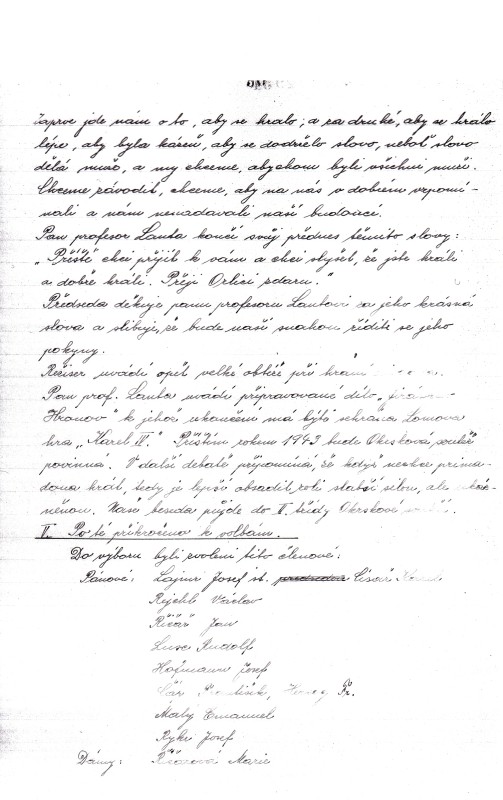 zaprve jde nám o to, aby se hralo; a za druhé, aby se hrálo
lépe, aby byla kázeň, aby se dodrželo slovo, neboť slovo
dělá muže, a my chceme, abychom byli všichni muži.
Chceme závodit, chceme, aby na nás v dobrém vzpomí-
nali a nám nenadávali naší budoucí.
Pan profesor Lanta končí svůj přednes těmito slovy:
"Příště chci přijíti k vám a chci slyšet, že jste hráli
a dobře hráli. Přeji Orlici zdaru."
Předseda děkuje panu profesoru Lantovi za jeho krásná
slova a slibuje, že bude naší snahou říditi se jeho
pokyny.
Režiser uvádí opět velké obtíže při hraní
Pan prof. Lanta uvádí připravované dílo
Hronov" k jehož ukončení má býti sehrána Lomova
hra "Karel IV." Příštím rokem 1943 bude Okrsková soutěž
povinná. V další debatě připomíná, že když nechce prima-
dona hrát, tedy je lepší obsadit roli slabší silou, ale
něnou. Naše beseda půjde do II. třídy Okrskové
V. Poté přikročeno k volbám.
Do výboru byli zvoleni tito členové:
Pánové: Josef st. předseda Císař
Rejchl Václav
Jan
Rudolf
Hofmann Josef
Fr.
Malý Emanuel
Josef
Dámy: Marie